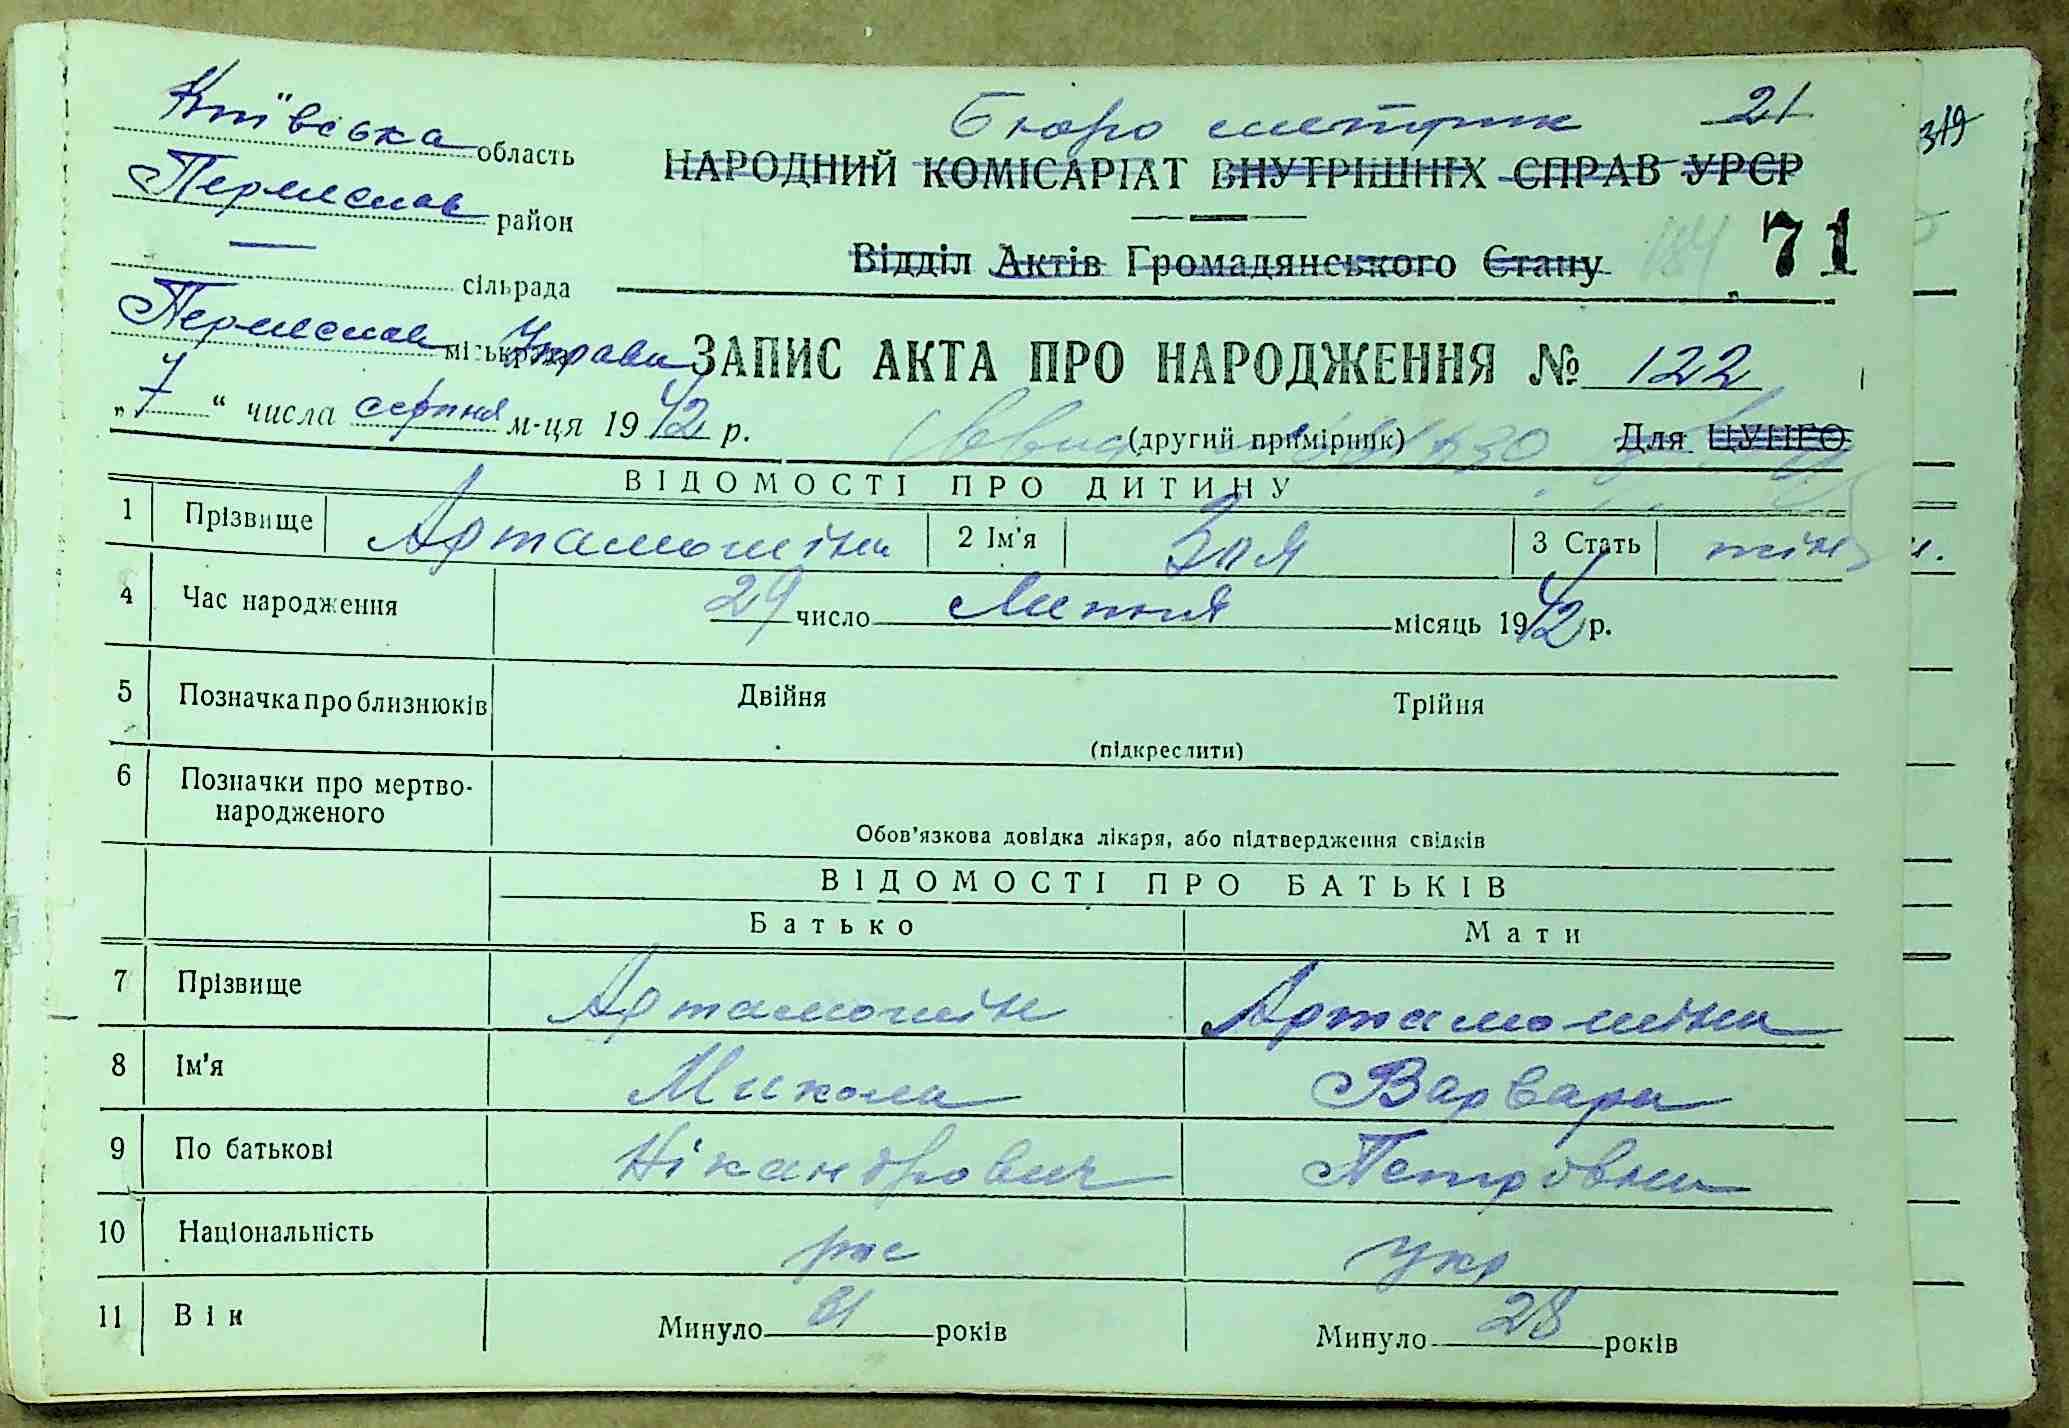 Київська область
Бюро метрик 21
319
НАРОДНИЙ КОМІСАРІАТ ВНУТРІШНІХ СПРАВ УРСР
Переяслав район
Відділ Актів Громадянського Стану 184 71
сільрада
Переяслав міськрада Управа
ЗАПИС АКТА ПРО НАРОДЖЕННЯ № 122
„7“ числа серпня м-ця 1942 р.
(другий примірник) Для ЦУНГО
ВІДОМОСТІ ПРО ДИТИНУ
1 Прізвище Артамошіна 2 Ім'я Зоя 3 Стать жін
4 Час народження 29 число Липня місяць 1942 р.
5 Позначка про близнюків Двійня Трійня
(підкреслити)
6 Позначки про мертво-
народженого
Обов'язкова довідка лікаря, або підтвердження свідків
ВІДОМОСТІ ПРО БАТЬКІВ
Батько Мати
7 Прізвище Артамошін Артамошіна
8 Ім'я Микола Варвара
9 По батькові Нікандрович Петровна
10 Національність рос укр
11 Вік Минуло 31 років Минуло 28 років